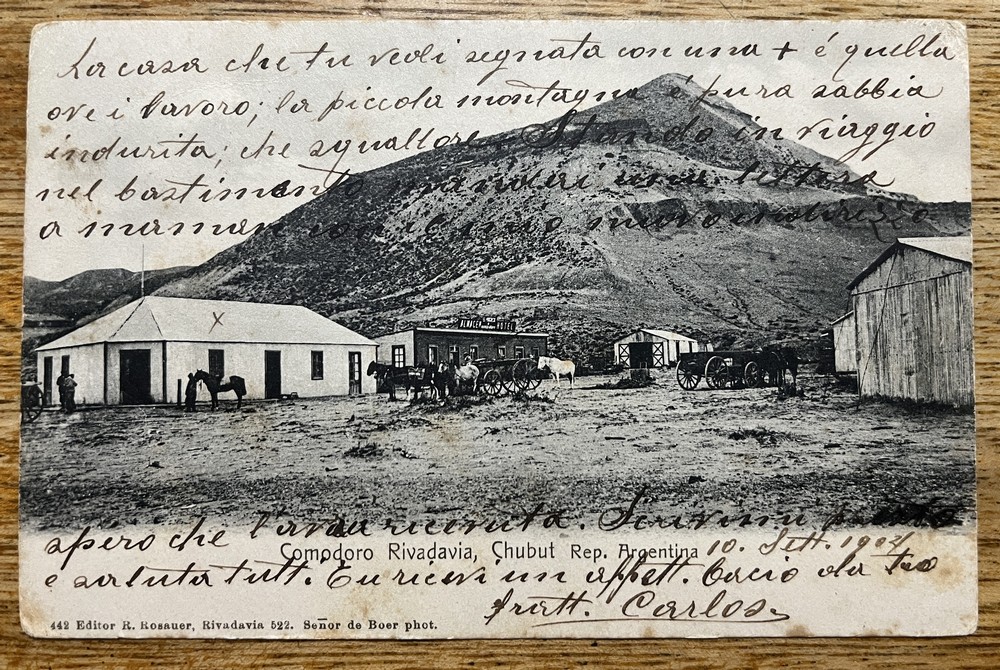 La casa che tu vedi segnata con una + é quella
ove i lavoro; la piccola montagna é pura sabbia
indurita; che squallore. Stando in viaggio
nel bastimento mandai una lettera
a maman con il mio nuovo indirizzo
X
ALMACEN HOTEL
spero che l'avrai ricevuta. Scrivimi presto
Comodoro Rivadavia, Chubut Rep. Argentina 10. Sett. 1904
e saluta tutt. Tu ricevi un affett. bacio da tuo
fratt. Carlos
442 Editor R. Rosauer, Rivadavia 522. Señor de Boer phot.